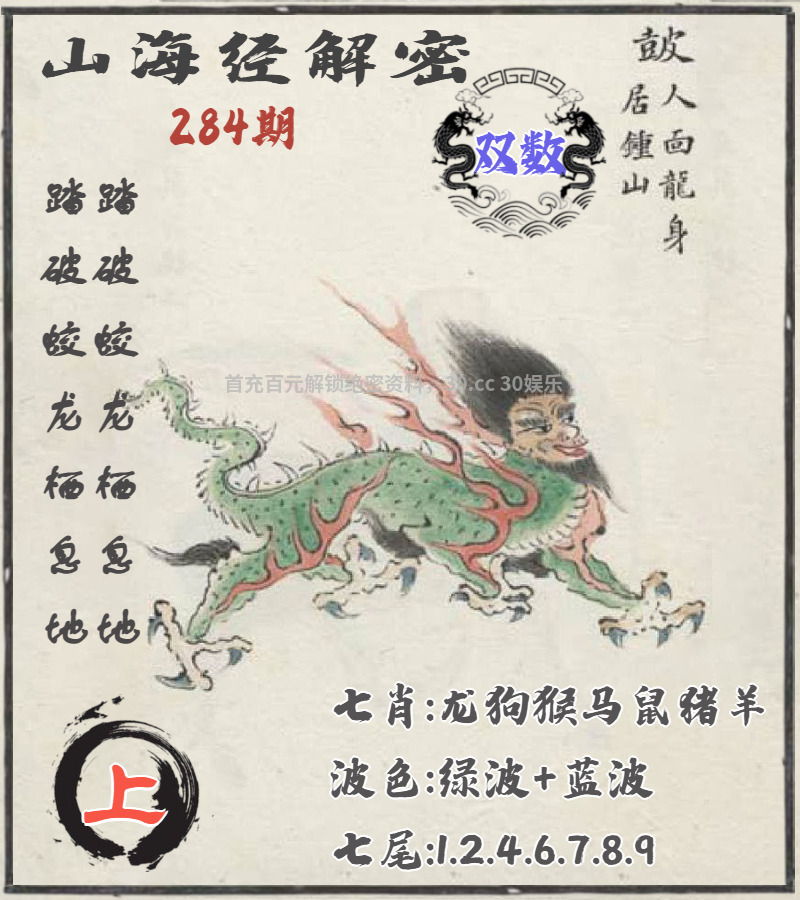 山海经解密
284期
双数
鼓
人面龍身
居鍾山
踏破蛟龙栖息地
踏破蛟龙栖息地
首充百元解锁绝密资料，30.cc 30娱乐
七肖:龙狗猴马鼠猪羊
波色:绿波+蓝波
七尾:1.2.4.6.7.8.9
上